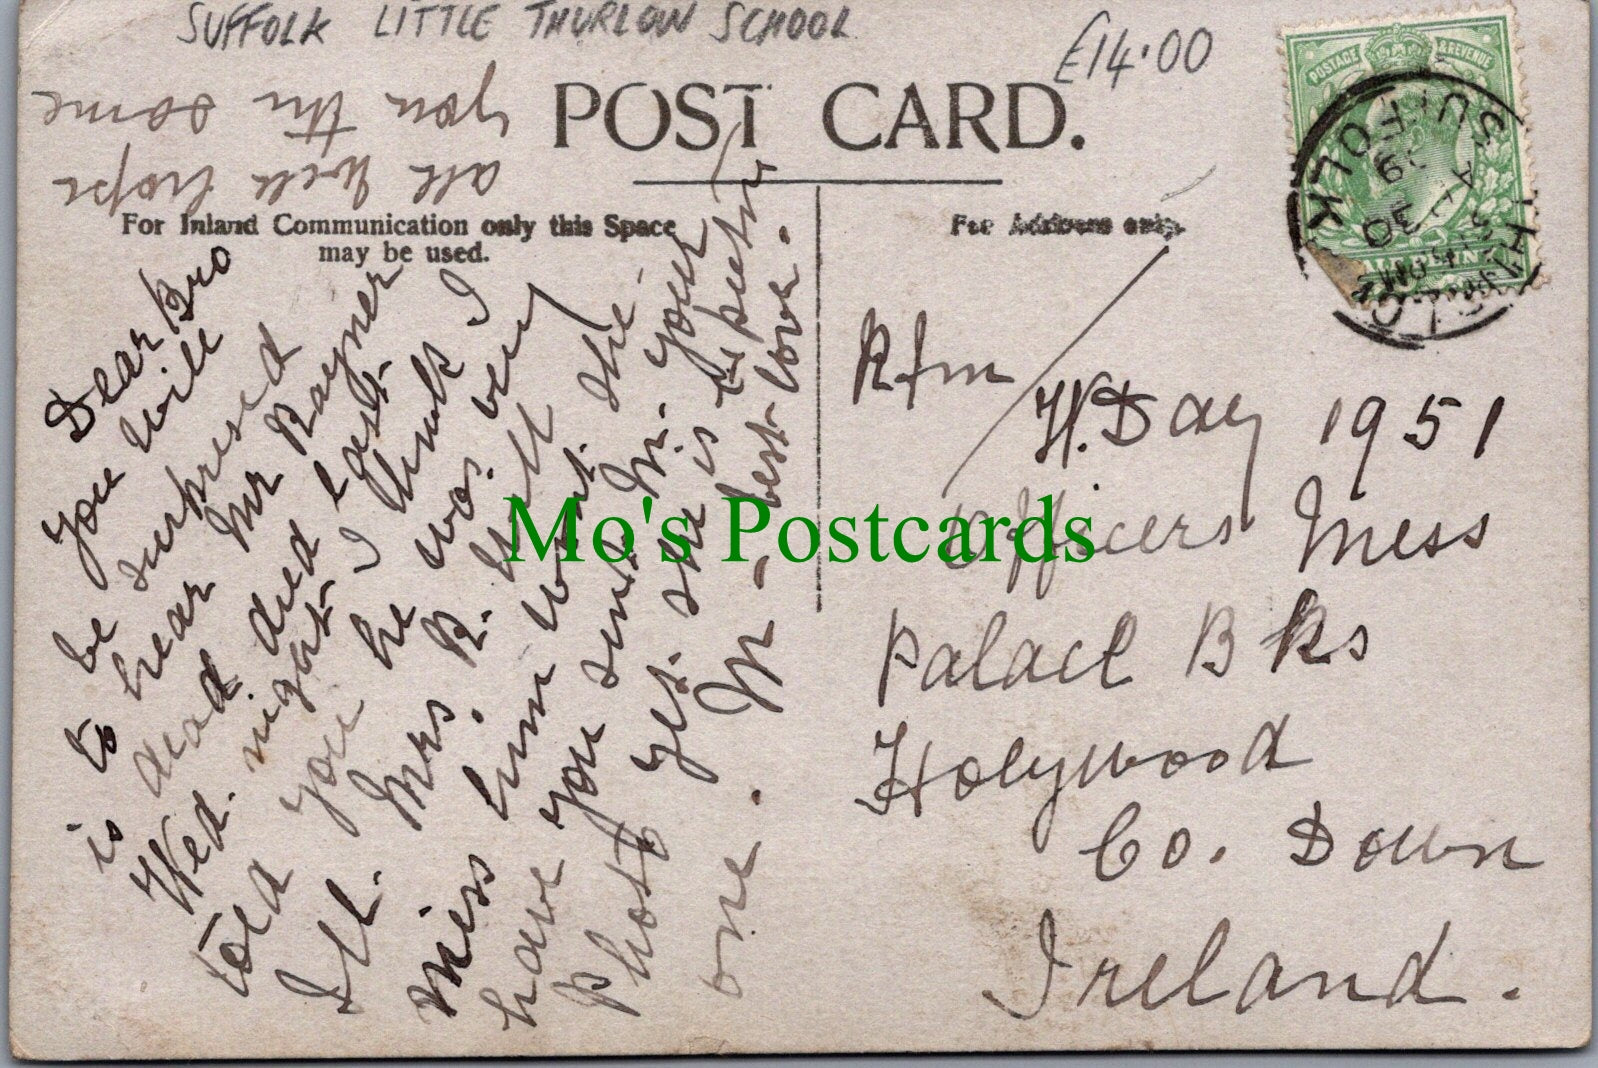 SUFFOLK LITTLE THURLOW SCHOOL
£14.00
all well hope
you the same
POST CARD.
For Inland Communication only this Space
may be used.
For Address only.
POSTAGE & REVENUE
SUFFOLK
Dear Bro
you will
be surprised
to hear Mr Rayner
is dead. died last
Wed. night I think I
told you he was very
Ill. Mrs. R. will
miss him wont she.
have you sent M. your
Photo yet. she is
one. M - best love.
Rfm
H. Day 1951
Officers Mess
Palace B Rks
Holywood
Co. Down
Ireland.
Mo's Postcards